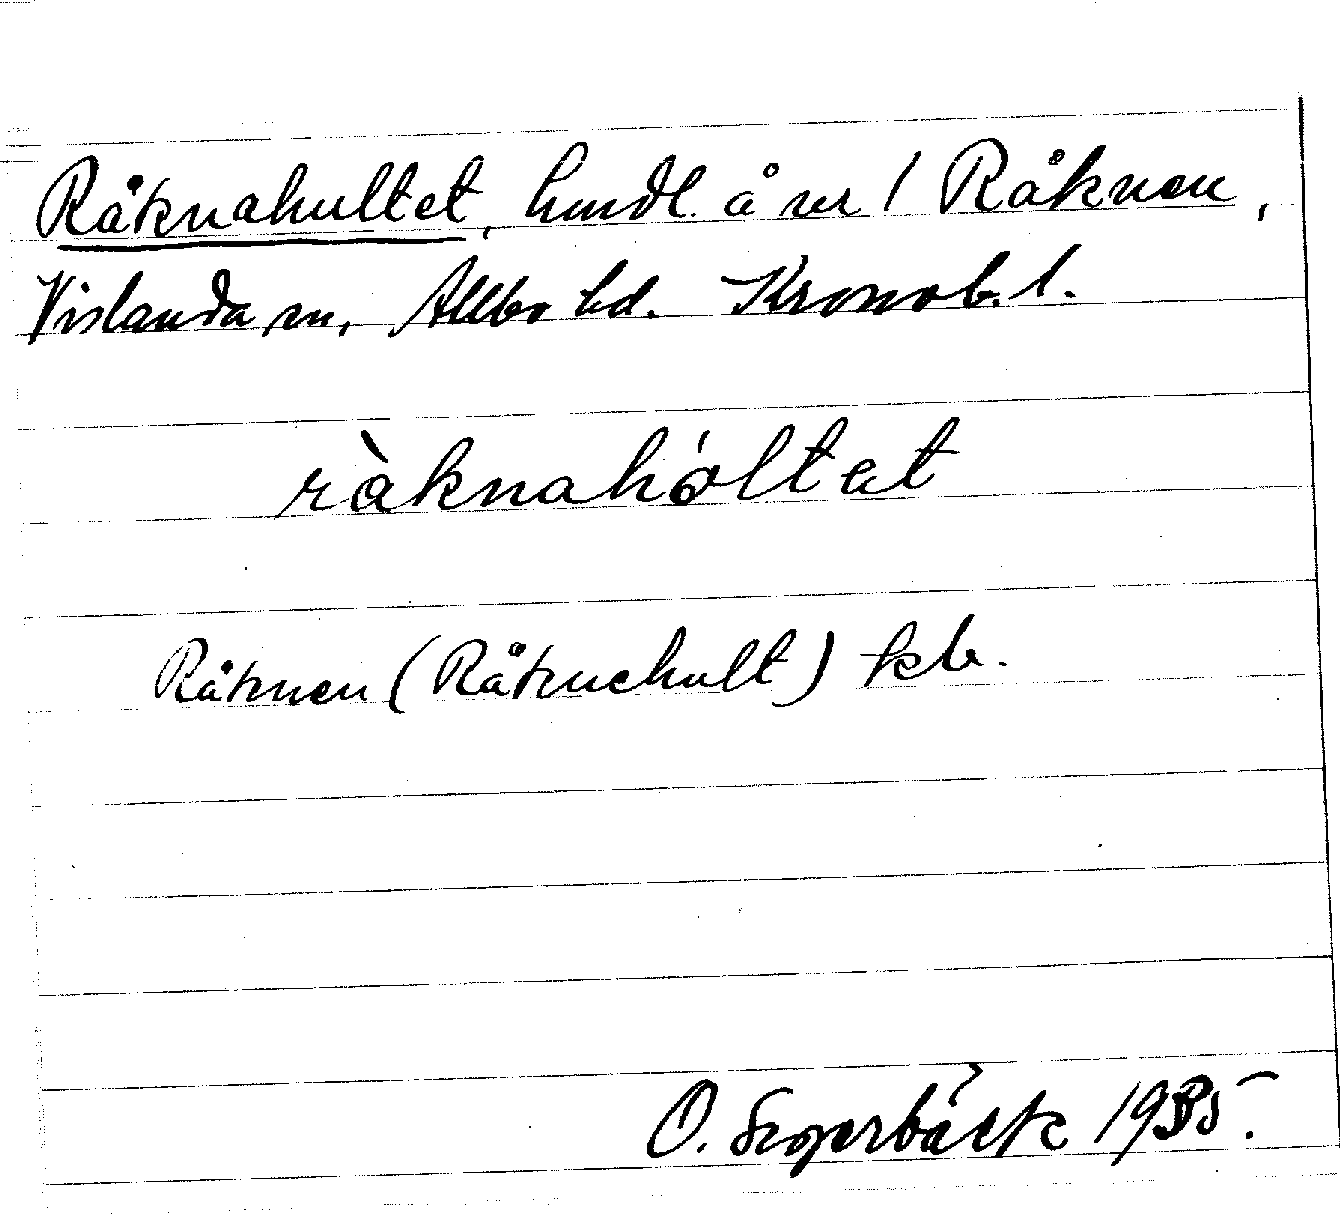 Råknahultet, hmdl. å nr 1 Råknen,
Vislanda sn, Allbo hd. Kronob. l.
ràknahóltat
Råknen (Råknehult) kb.
O. Segerbäck 1935.